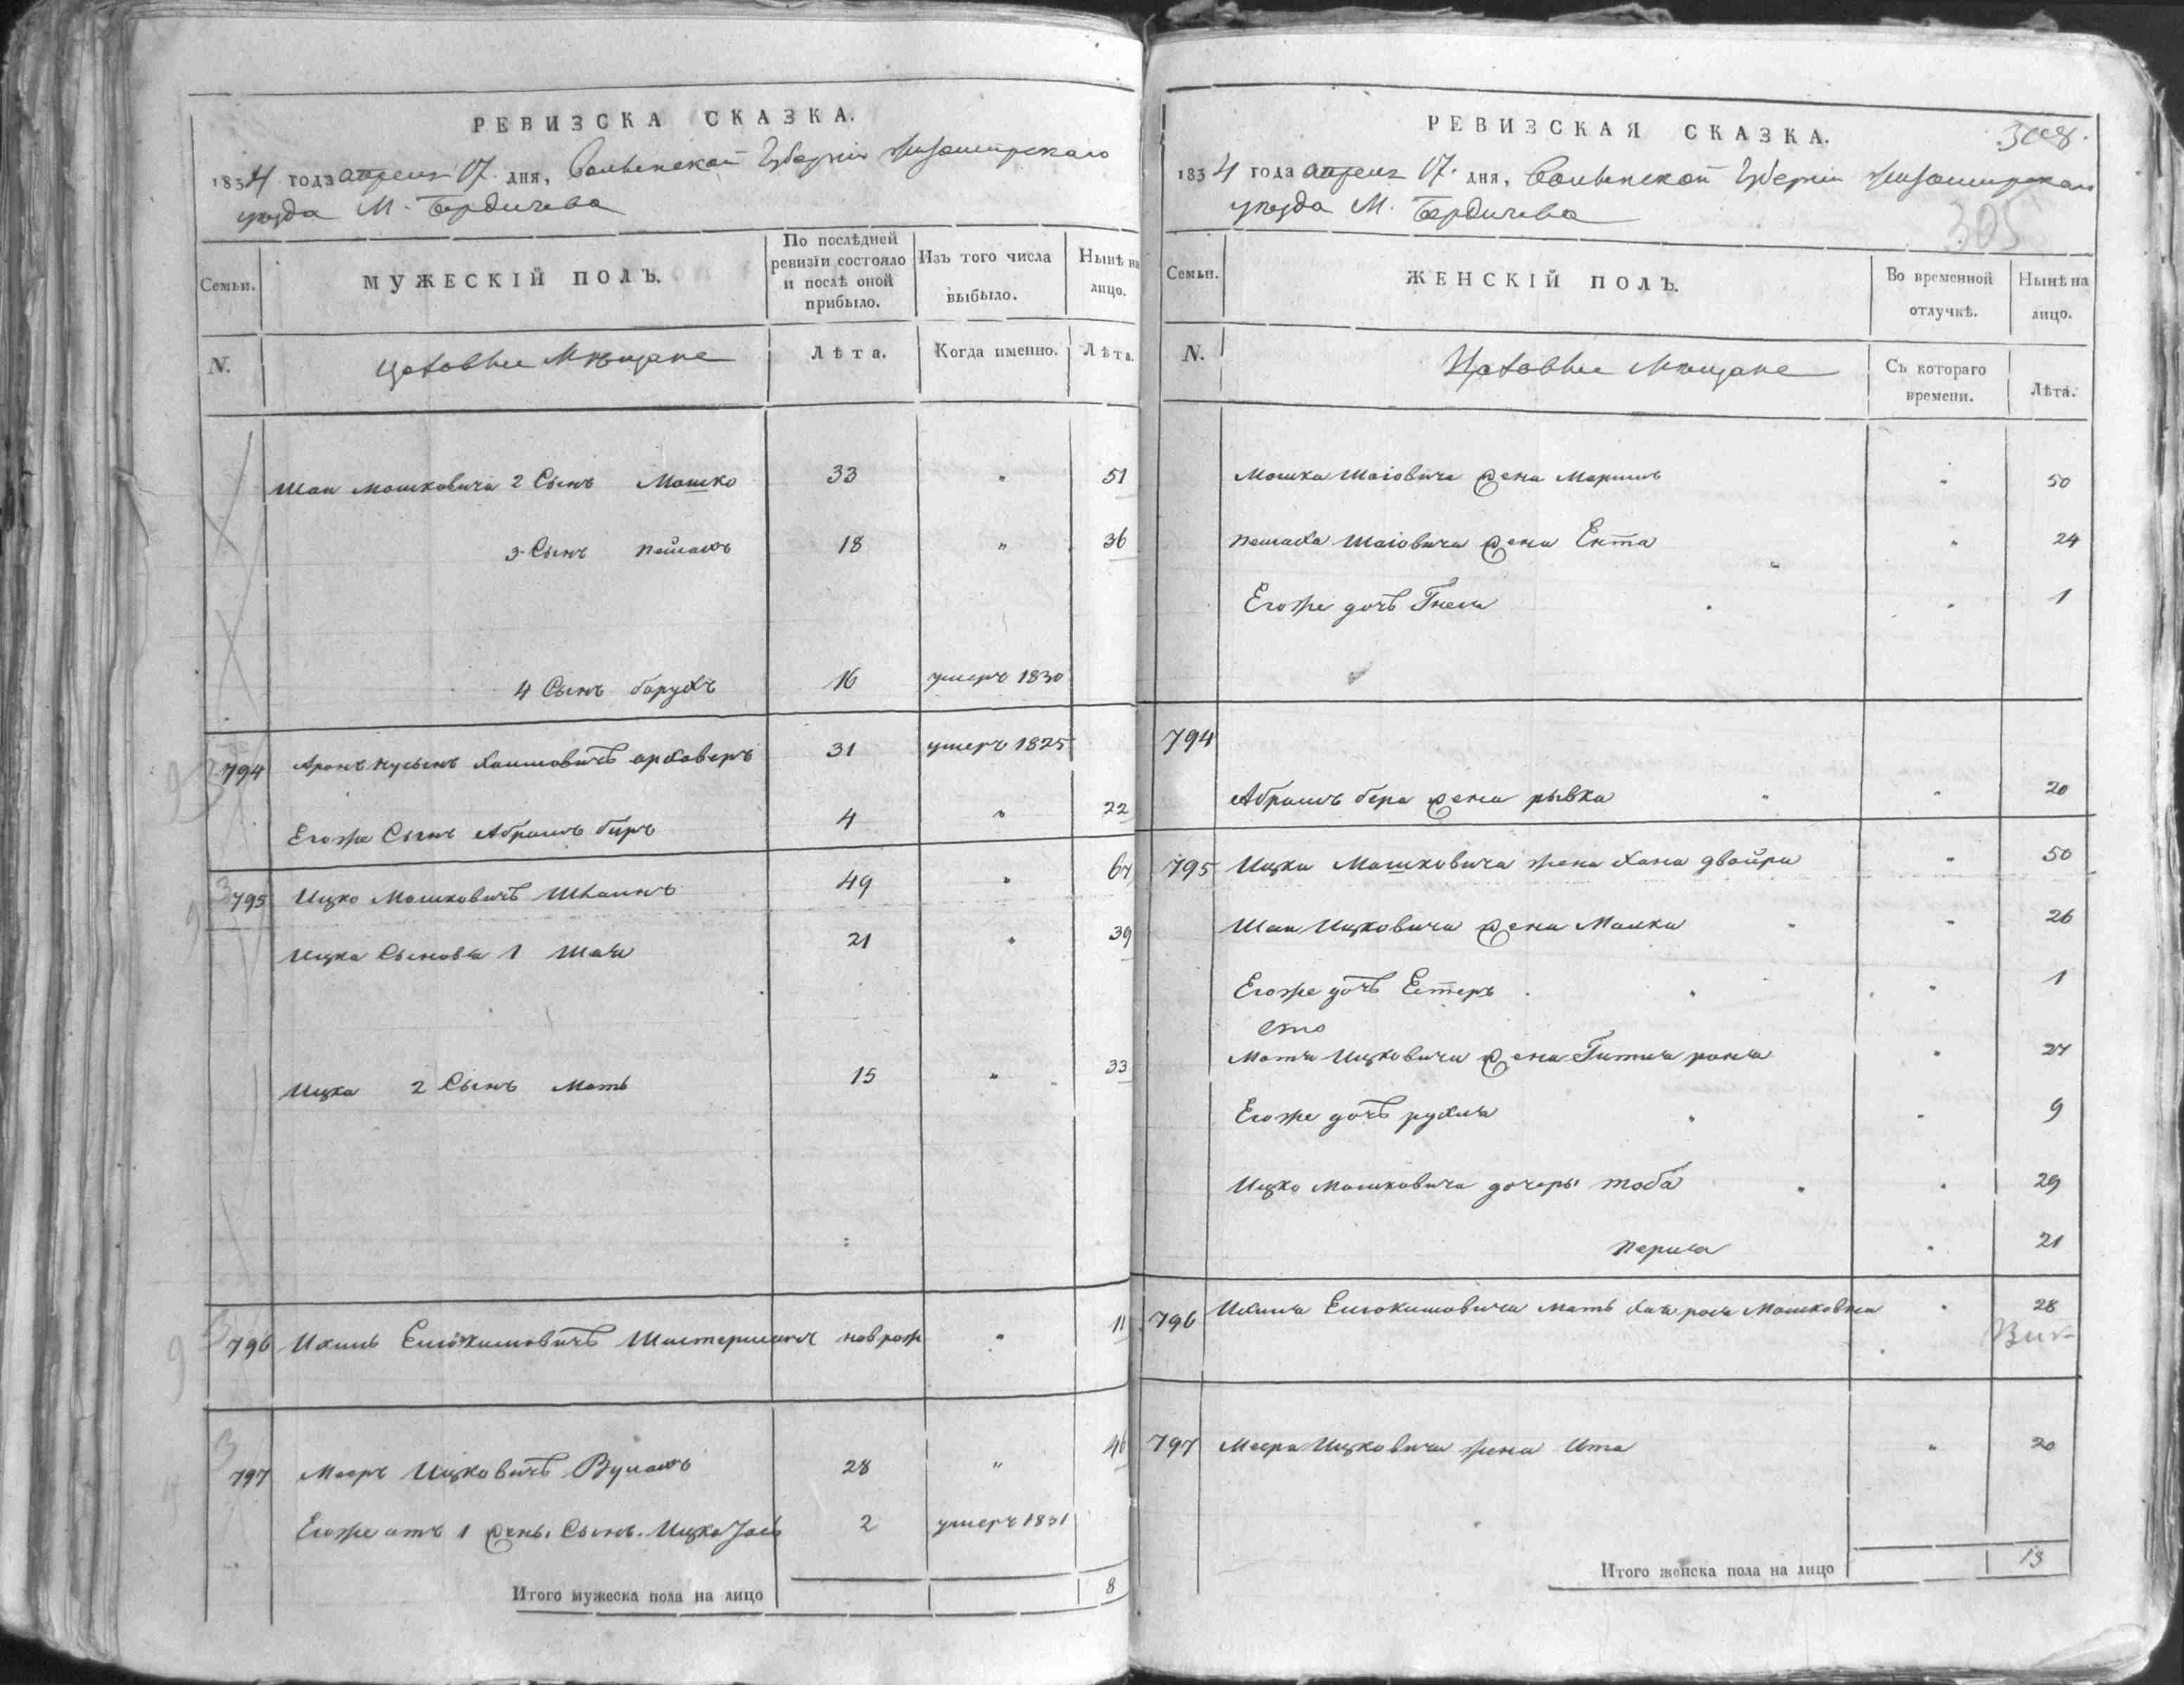 РЕВИЗСКА СКАЗКА.
1834 года апреля 17 дня, Волынской Губернии Житомирскаго
уезда М. Бердичева
Семьи.
МУЖЕСКІЙ ПОЛЪ.
По послѣдней ревизіи состояло и послѣ оной прибыло.
Изъ того числа выбыло.
Нынѣ на лицо.
N.
Цеховые Мѣщане
Лѣта.
Когда именно.
Лѣта.
Шаи Мошковича 2 Сынъ Мошко 33 " 51
3 Сынъ Пейсахъ 18 " 36
4 Сынъ Барухъ 16 умеръ 1830
794 Аронъ Нусынъ Хаимовичъ 31 умеръ 1825
Егоже Сынъ Абрамъ Беръ 4 " 22
795 Ицко Мошковичъ 49 " 67
Ицка Сыновья 1 Шая 21 " 39
Ицка 2 Сынъ Моть 15 " 33
796 новрож " 11
797 Мееръ Ицковичъ 28 " 46
Егоже отъ 1 жены Сынъ Ицко 2 умеръ 1831
Итого мужеска пола на лицо 8
РЕВИЗСКАЯ СКАЗКА.
308.
1834 года апреля 17 дня, Волынской Губернии Житомирскаго
уезда М. Бердичева
305
Семьи.
ЖЕНСКІЙ ПОЛЪ.
Во временной отлучкѣ.
Нынѣ на лицо.
N.
Цеховые Мещане
Съ котораго времени.
Лѣта.
Мошка Шаіовича жена " 50
Пейсаха Шаіовича жена Ента " 24
Егоже дочь " 1
794
Абрамъ Бера жена Рывка " 20
795 Ицка Мошковича жена Хана Двойра " 50
Шаи Ицковича жена Малка " 26
Егоже дочь Естеръ " 1
Моти Ицковича жена " 27
Егоже дочь Рухля " 9
Ицко Мошковича дочеры Тоба " 29
Перля " 21
796 мать Мошковна " 28
797 Меера Ицковича жена Ита " 20
Итого женска пола на лицо 13